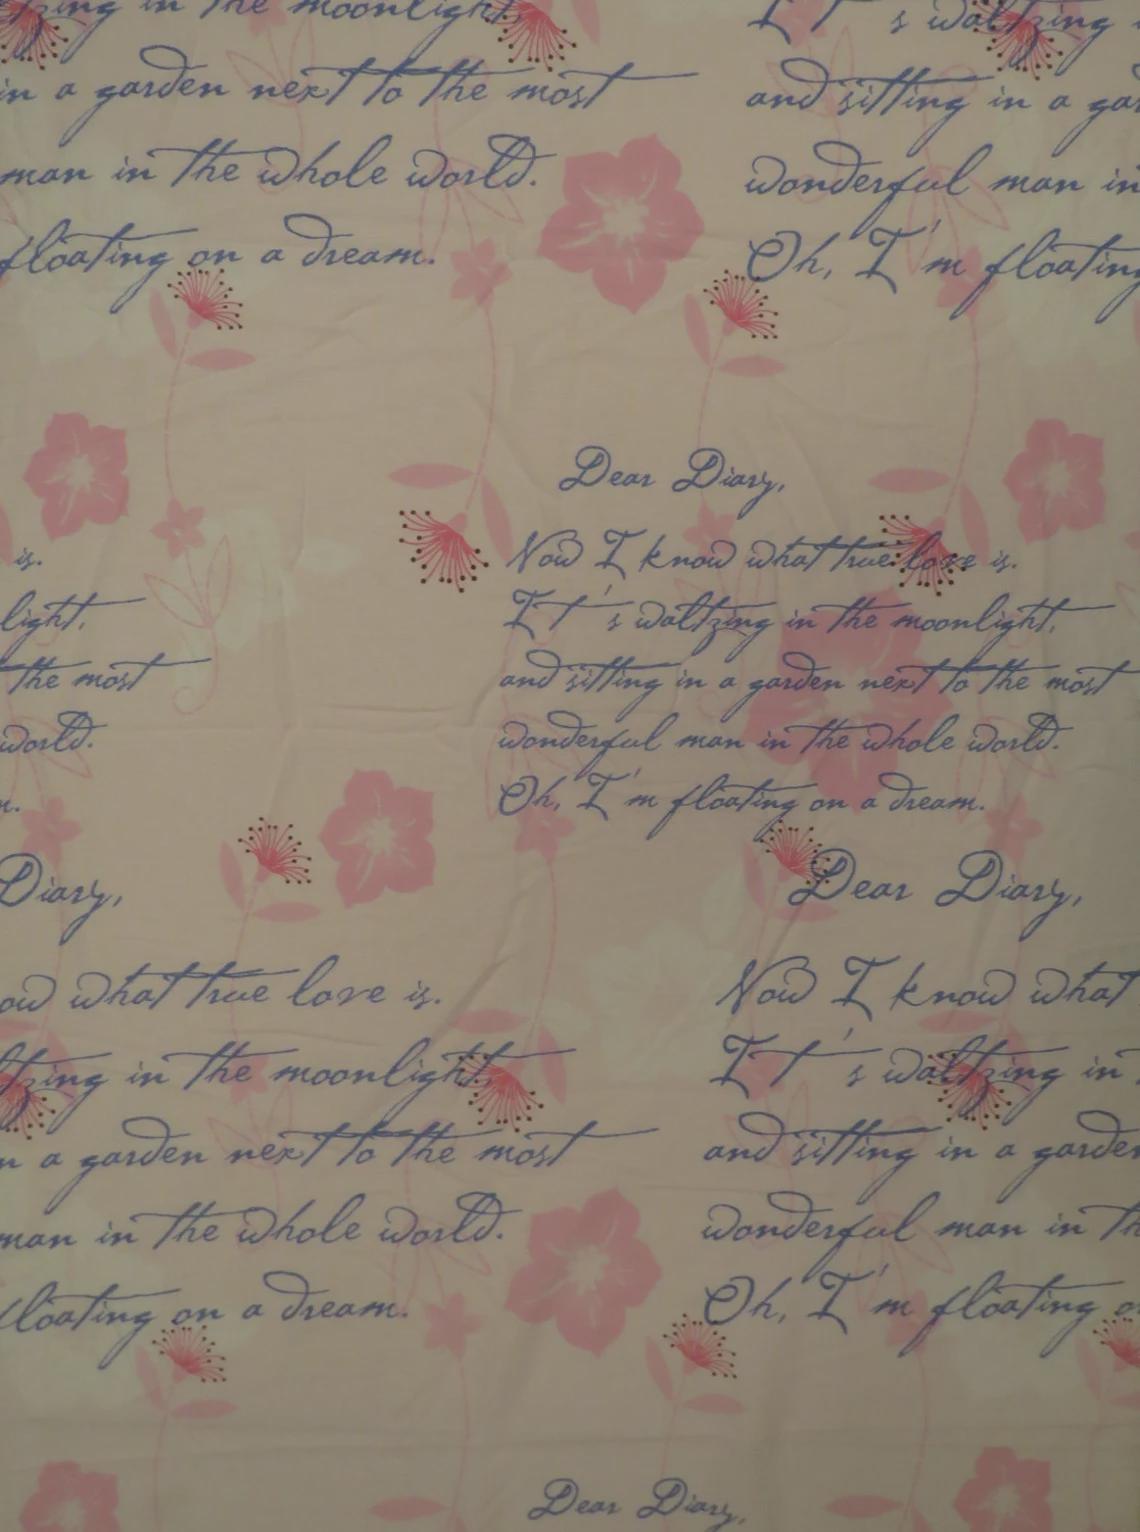 zing in the moonlight,
in a garden next to the most
man in the whole world.
floating on a dream.
It's waltzing
and sitting in a
wonderful man in
Oh, I'm floating
is.
light,
the most
world.
Dear Diary,
Now I know what true love is.
It's waltzing in the moonlight,
and sitting in a garden next to the most
wonderful man in the whole world.
Oh, I'm floating on a dream.
Diary,
ow what true love is.
ltzing in the moonlight,
n a garden next to the most
man in the whole world.
floating on a dream.
Dear Diary,
Now I know what
It's waltzing in
and sitting in a garden
wonderful man in
Oh, I'm floating
Dear Diary,